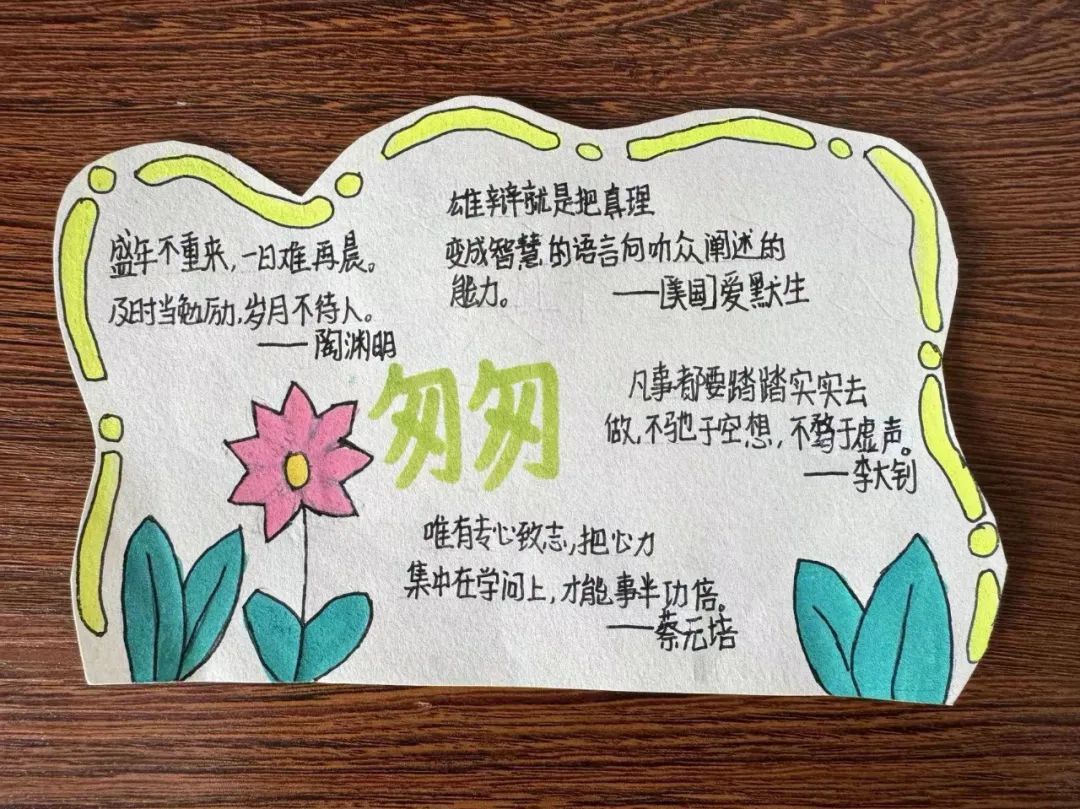 盛年不重来,一日难再晨。
及时当勉励,岁月不待人。
——陶渊明
雄辩就是把真理
变成智慧的语言向听众阐述的
能力。 ——[美国]爱默生
匆匆
凡事都要踏踏实实去
做,不驰于空想,不骛于虚声。
——李大钊
唯有专心致志,把心力
集中在学问上,才能事半功倍。
——蔡元培